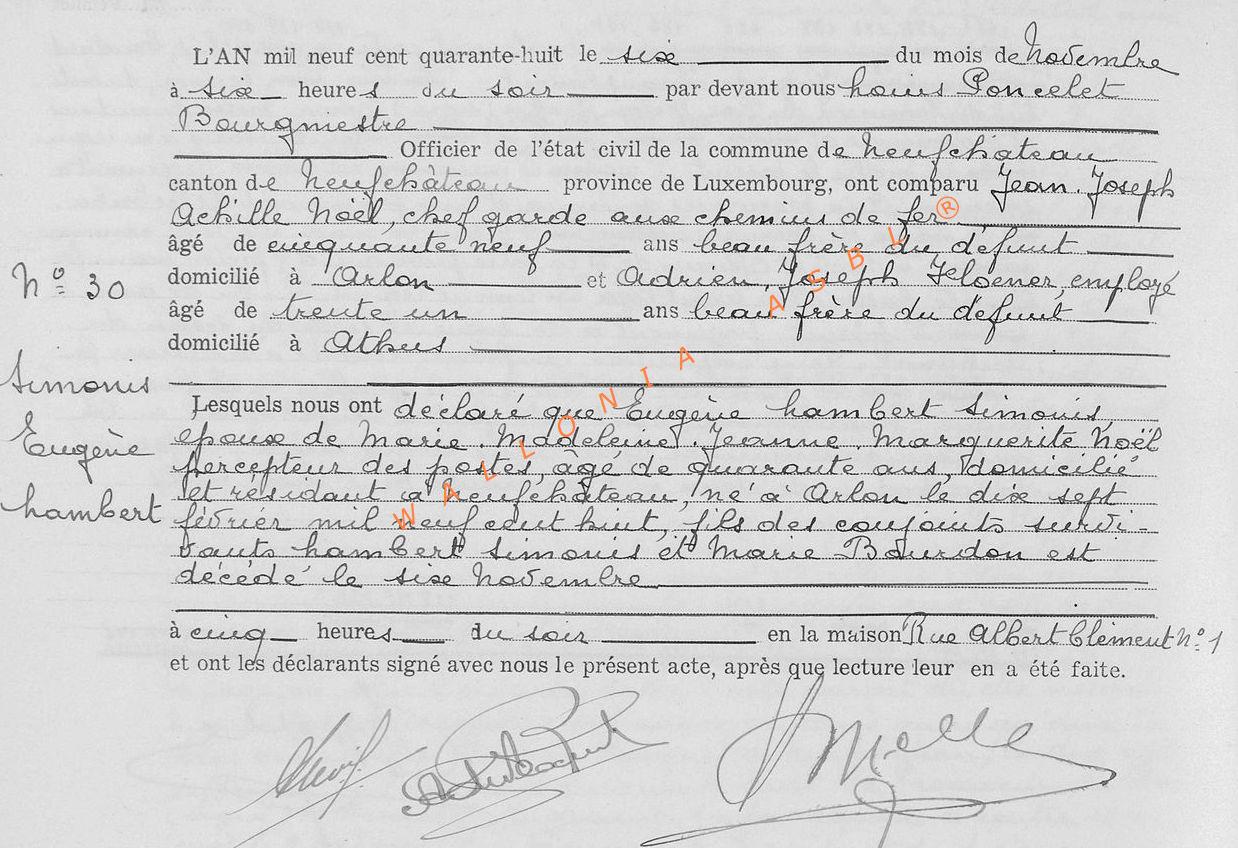 L'AN mil neuf cent quarante-huit le six du mois de Novembre
à six heures du soir par devant nous Louis Poncelet
Bourgmestre
Officier de l'état civil de la commune de Neufchâteau
canton de Neufchâteau province de Luxembourg, ont comparu Jean. Joseph
Achille Noël, chef garde aux chemins de fer
âgé de cinquante neuf ans beau frère du défunt
domicilié à Arlon et Adrien, Joseph employé
N° 30
âgé de trente un ans beau frère du défunt
domicilié à Athus
Simonis
Eugène
Lambert
Lesquels nous ont déclaré que Eugène Lambert Simonis,
epoux de Marie. Madeleine. Jeanne Marguerite Noël
percepteur des postes, âgé de quarante ans, domicilié
et résidant à Neufchâteau, né à Arlon le dix sept
février mil neuf cent huit, fils des conjoints survi-
vants Lambert Simonis et Marie Bourdon est
décédé le six Novembre
à cinq heures du soir en la maison Rue Albert Clément N° 1
et ont les déclarants signé avec nous le présent acte, après que lecture leur en a été faite.
WALLONIA ASBL®